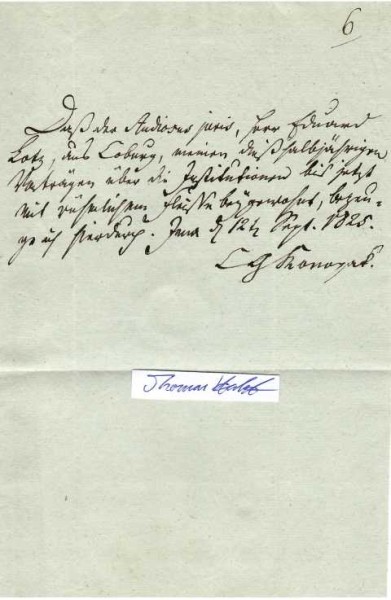 6
Daß der Studiosus juris, Herr Eduard
Lotz, aus Coburg, meinen dießhalbjährigen
Vorträgen über die Institutionen bis jetzt
mit rühmlichem Fleiße beygewohnt, bezeu-
ge ich hierdurch. Jena d 12t Sept. 1825.
C G Konopak.
Thomas